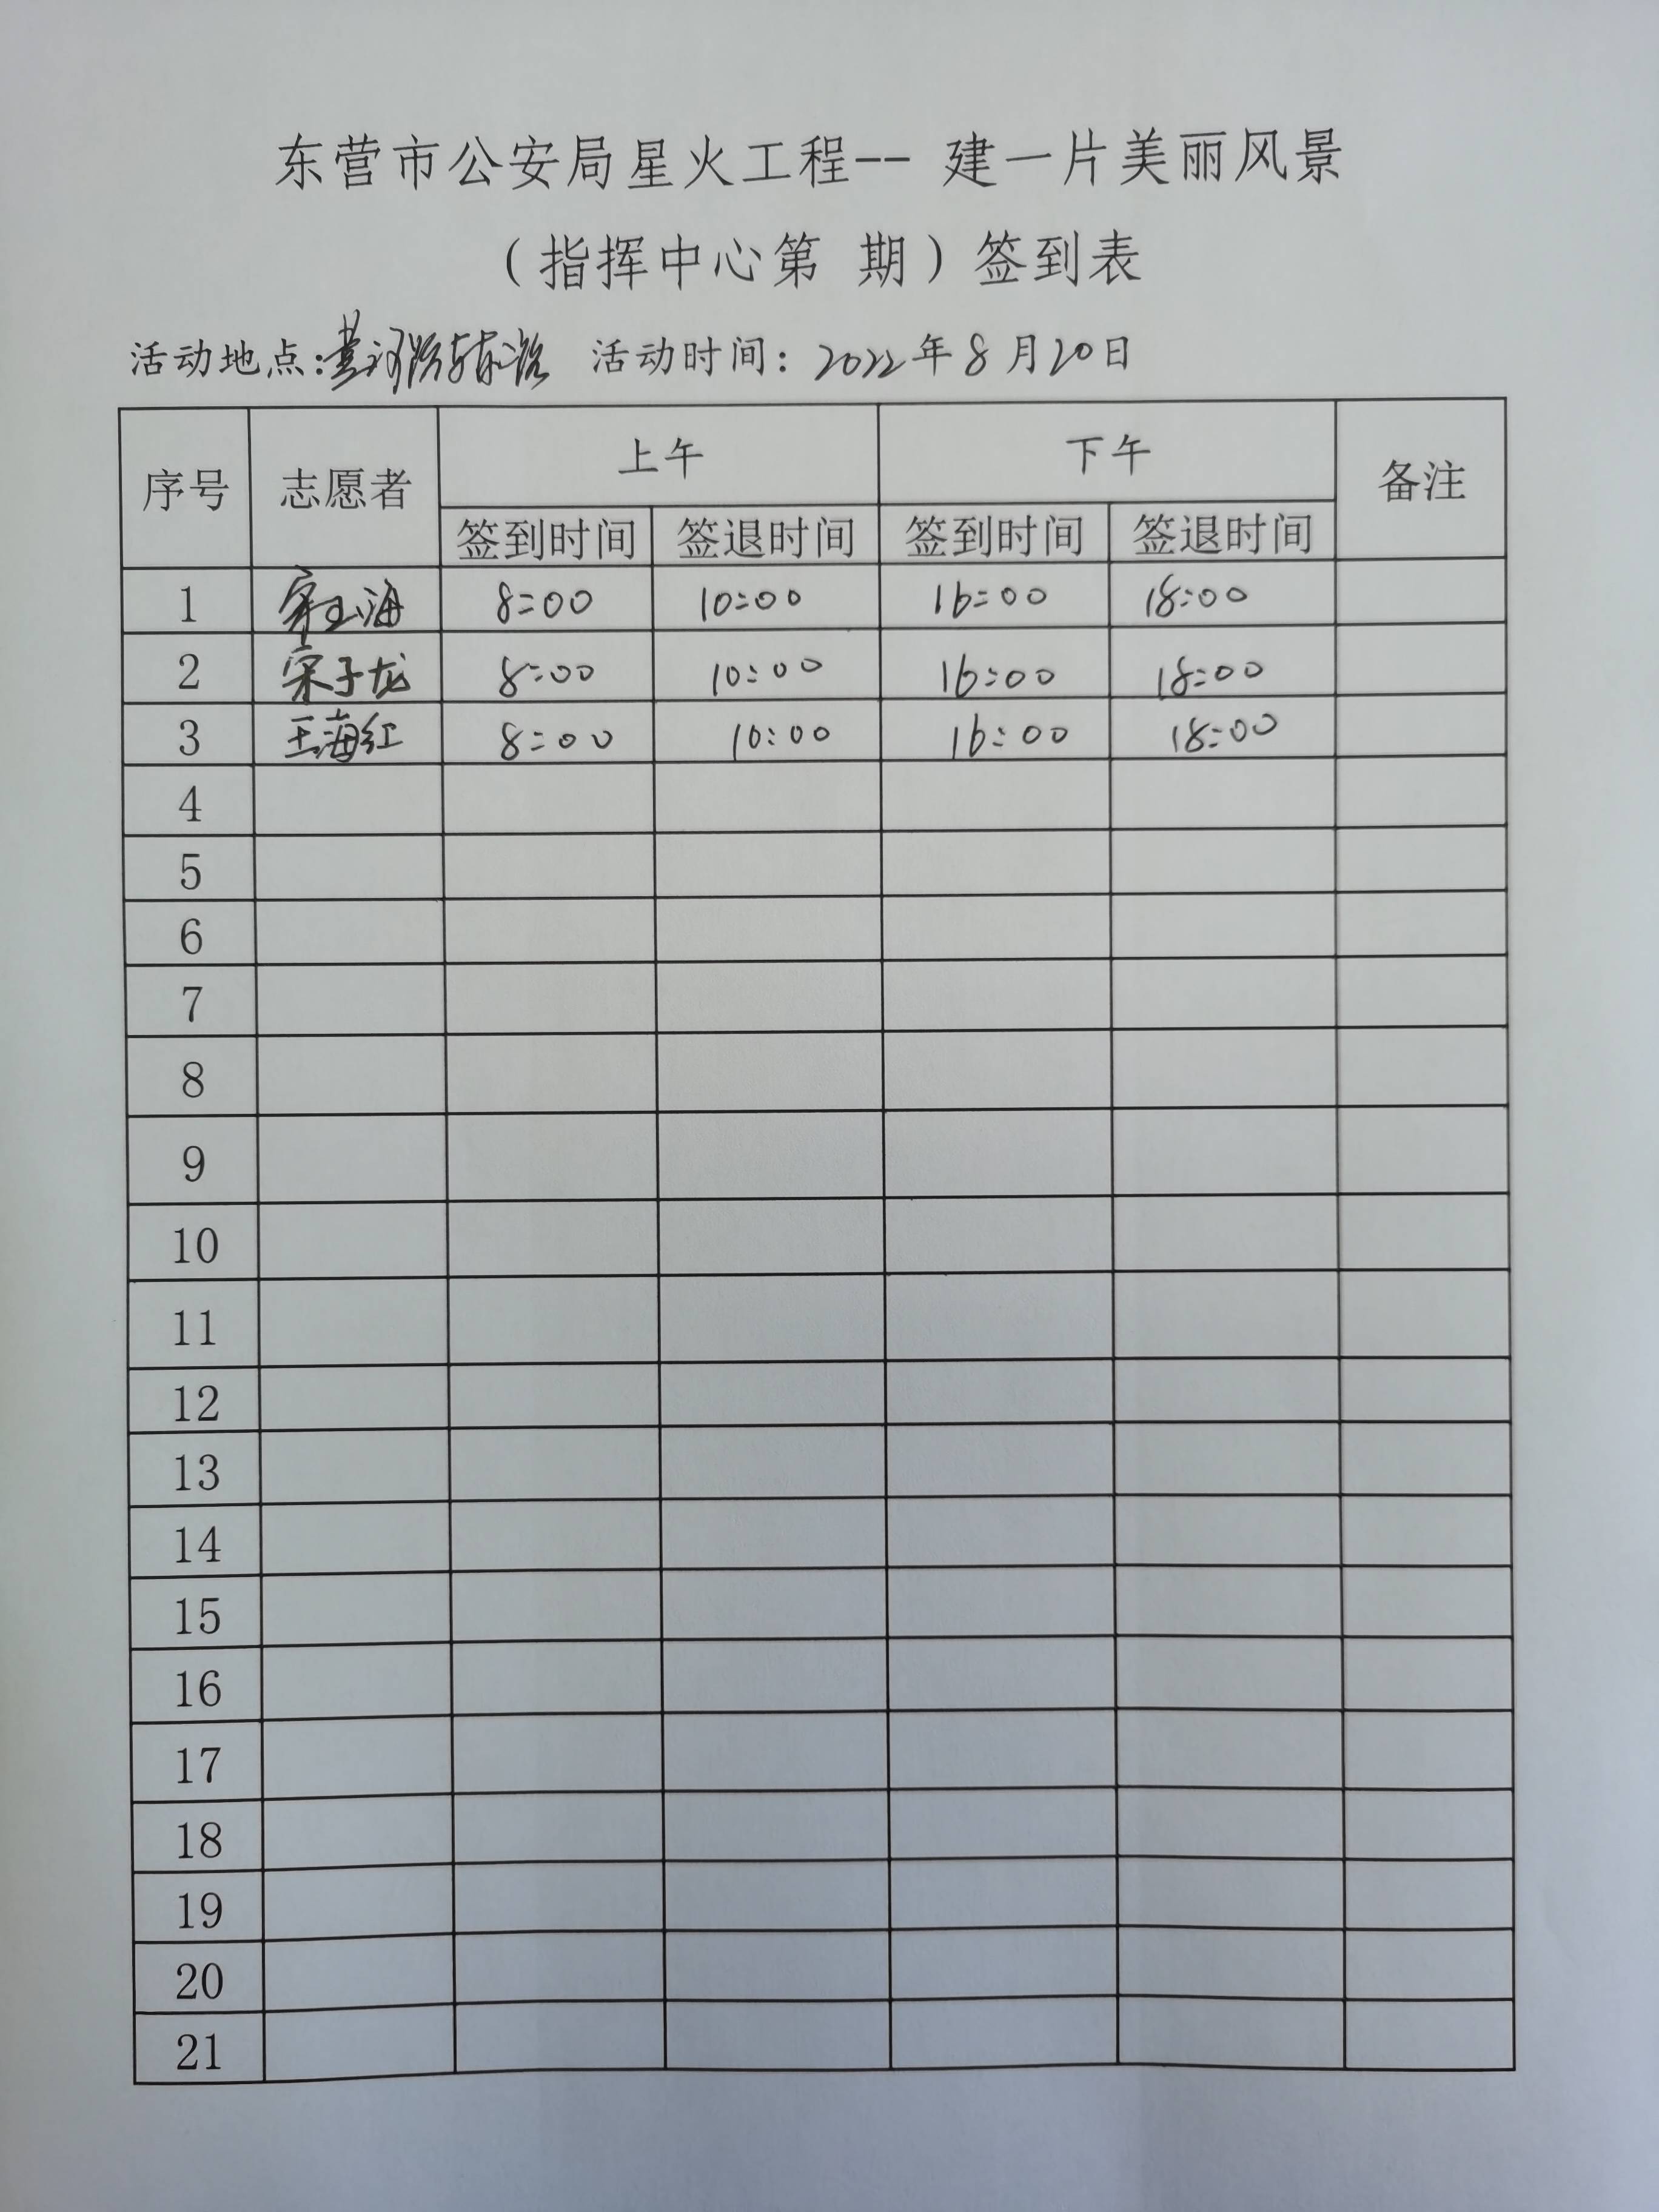 东营市公安局星火工程-- 建一片美丽风景
（指挥中心第 期）签到表
活动地点:黄河路与东二路 活动时间: 2022年8月20日
序号 志愿者 上午 下午 备注
签到时间 签退时间 签到时间 签退时间
1 宋玉海 8:00 10:00 16:00 18:00
2 宋子龙 8:00 10:00 16:00 18:00
3 王海红 8:00 10:00 16:00 18:00
4
5
6
7
8
9
10
11
12
13
14
15
16
17
18
19
20
21